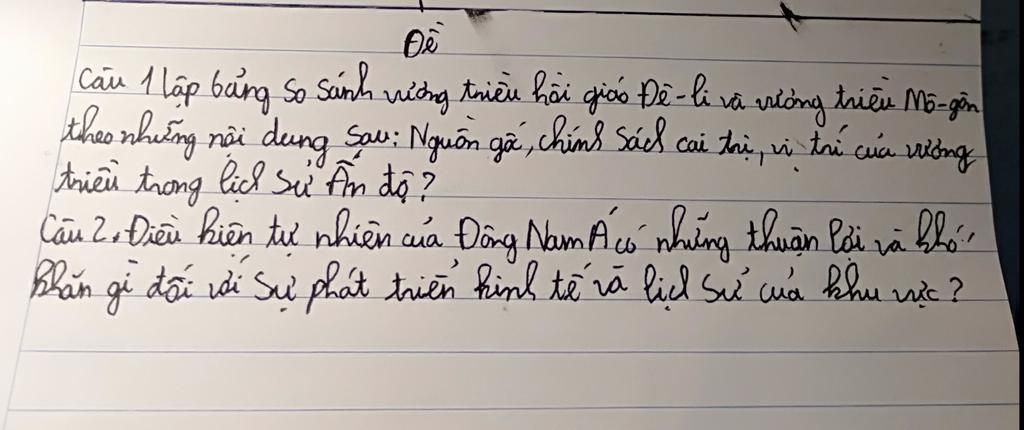 Đề
Câu 1 lập bảng so sánh vương triều hồi giáo Đê-li và vương triều Mô-gôn
theo những nội dung sau: Nguồn gốc, chính sách cai trị, vị trí của vương
triều trong lịch sử Ấn độ?
Câu 2. Điều kiện tự nhiên của Đông Nam Á có những thuận lợi và khó
khăn gì đối với sự phát triển kinh tế và lịch sử của khu vực?